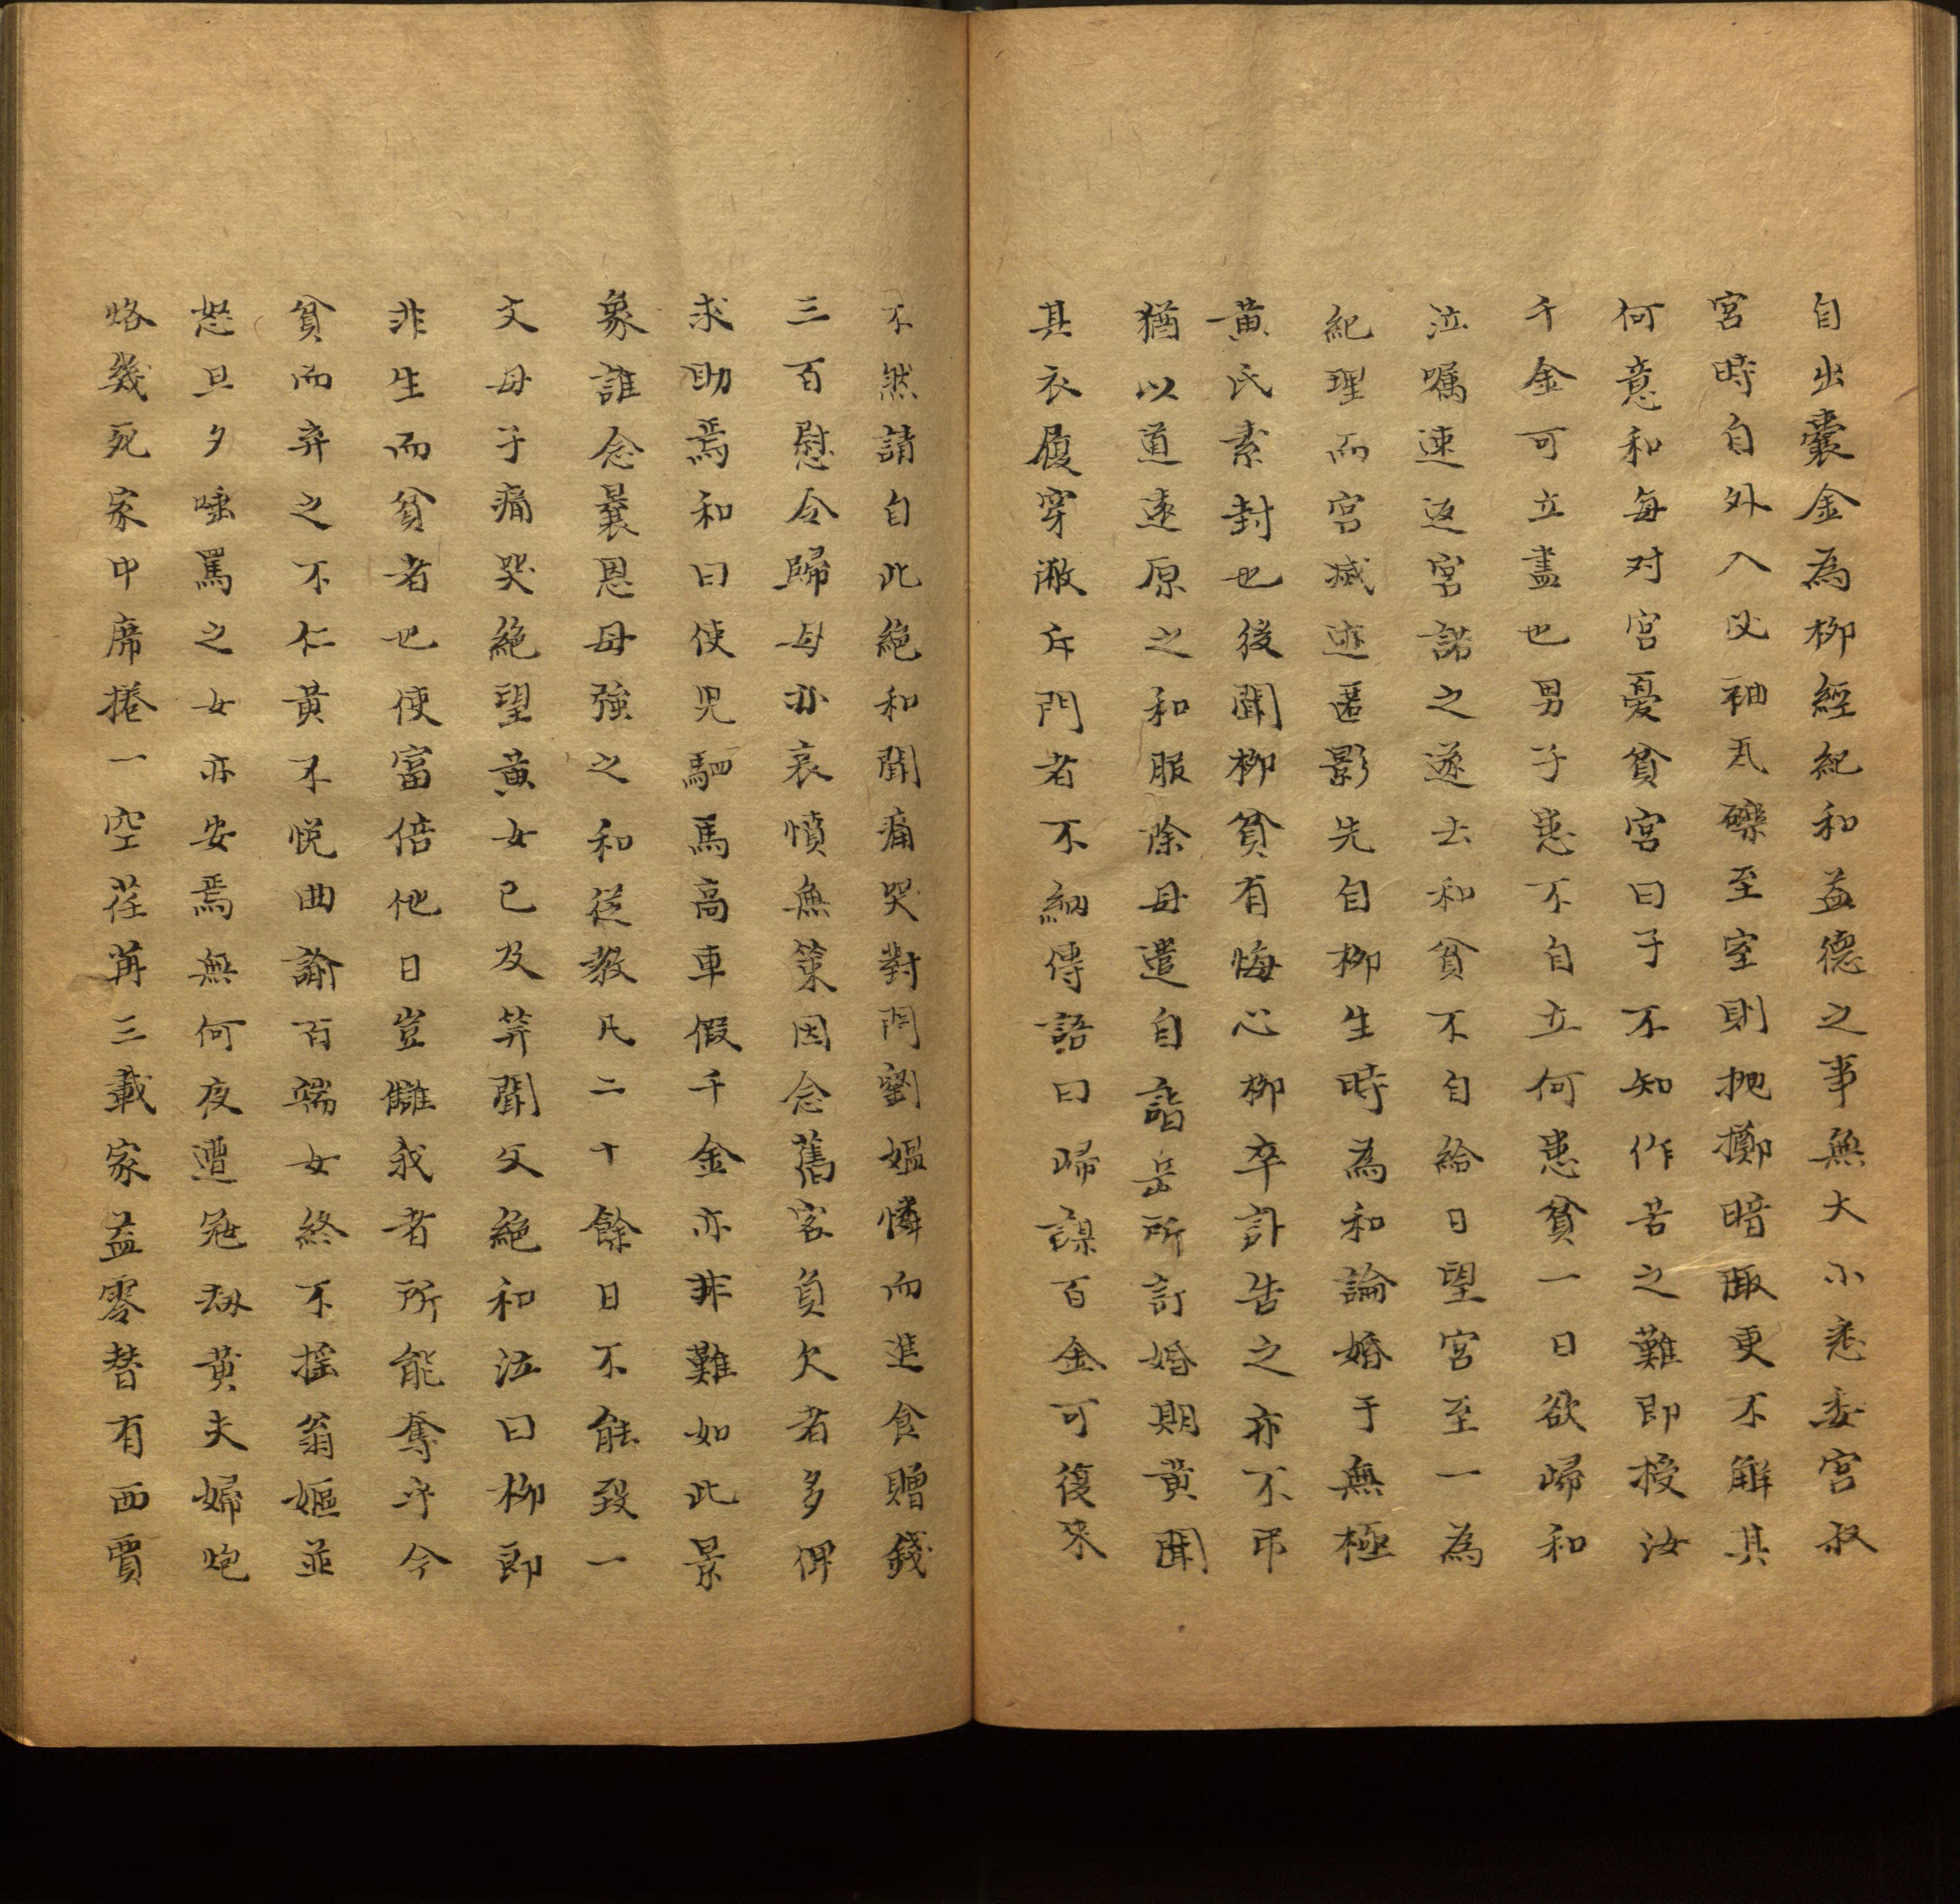 自出囊金為柳經紀和益德之事無大小悉委宮叔
宮時自外入必袖瓦礫至室則抛擲暗陬更不解其
何意和每对宮憂貧宮曰子不知作苦之難即授汝
千金可立盡也男子患不自立何患貧一日欲歸和
泣嘱速返宮諾之遂去和貧不自給日望宮至一為
紀理而宮滅迹匿影先自柳生時為和論婚于無極
黃氏素封也後聞柳貧有悔心柳卒訃告之亦不吊
猶以道遠原之和服除母遣自詣岳所訂婚期黃聞
其衣履穿敝斥門者不納傳語曰歸謀百金可復来
不然請自此絕和聞痛哭對門劉媼憐而進食贈錢
三百慰令歸母亦哀憤無策因念舊客負欠者多俾
求助焉和曰使児駟馬高車假千金亦非難如此景
象誰念曩恩母強之和從教凡二十餘日不能致一
文母子痛哭絕望黃女已及笄聞父絕和泣曰柳郎
非生而貧者也使富倍他日豈讎我者所能奪乎今
貧而弃之不仁黃不悦曲諭百端女終不揺翁嫗並
怒旦夕唾罵之女亦安焉無何夜遭宼刼黃夫婦炮
烙幾死家中席捲一空荏苒三載家益零替有西賈